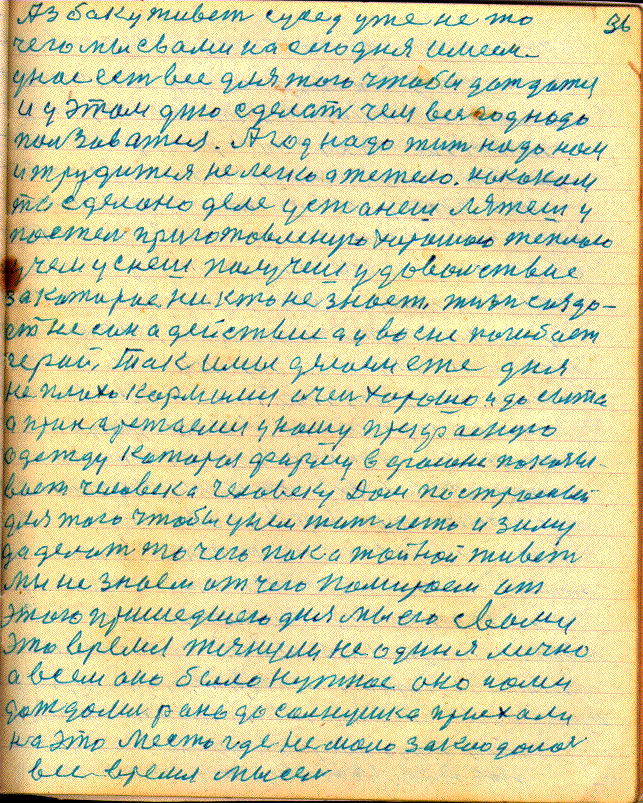 36
Аз баку живет сусед уже не то
чего мы свами на сегодня имеем.
унас ест все для того чтобы дождатся
и у этом
сделат чем
надо
ползоватся. А год надо жит надо нам
и трудится не легко а тежело. какоком
то сделано деле устанеш ляжеш у
постел приготовленую хорошою теплою
у чем уснеш получеш удоволствие
за каторое ни кто не знает. жизн создо-
ет не сон а действие а у во сне погибает
герой. Так и мы делаем эти дня
не плохо кормими очен хорошо и до сыта
а принаряжаеми у нашу прекрасную
одежду каторая форму в
показы-
вает человека человеку Дом построеный
для того чтобы унем жит лето и зиму
да делат то чего пока тайной живет
мы не знаем от чего помираем от
этого пришедшего дня мы его свами
это время тянули не один я лично
а всем оно было нужное оно нами
дождоми рано до солнушка приехали
на это место где не мало
все время мысел